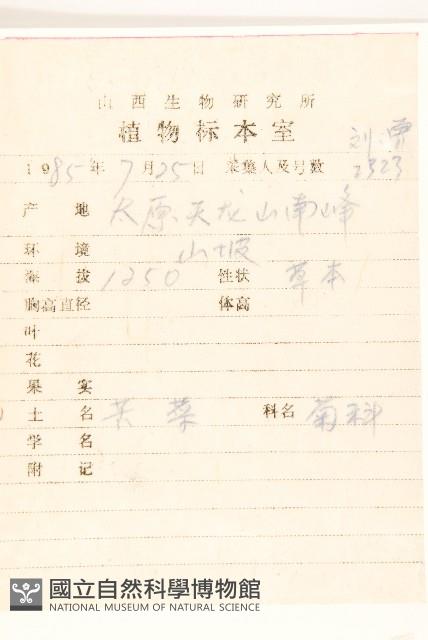 山西生物研究所
植物标本室
1985年7月25日 采集人及号数 刘 2323
产 地 太原天龙山南峰
环 境 山坡
海 拔 1250 性状 草本
胸高直径 体高
叶
花
果 实
土 名 苦菜 科名 菊科
学 名
附 记
國立自然科學博物館
NATIONAL MUSEUM OF NATURAL SCIENCE